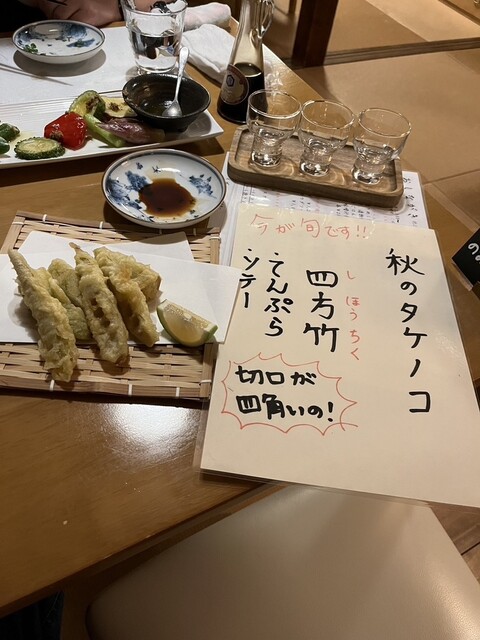 今が旬です!!
秋のタケノコ
しほうちく
四方竹
・てんぷら
・ソテー
切口が
四角いの!